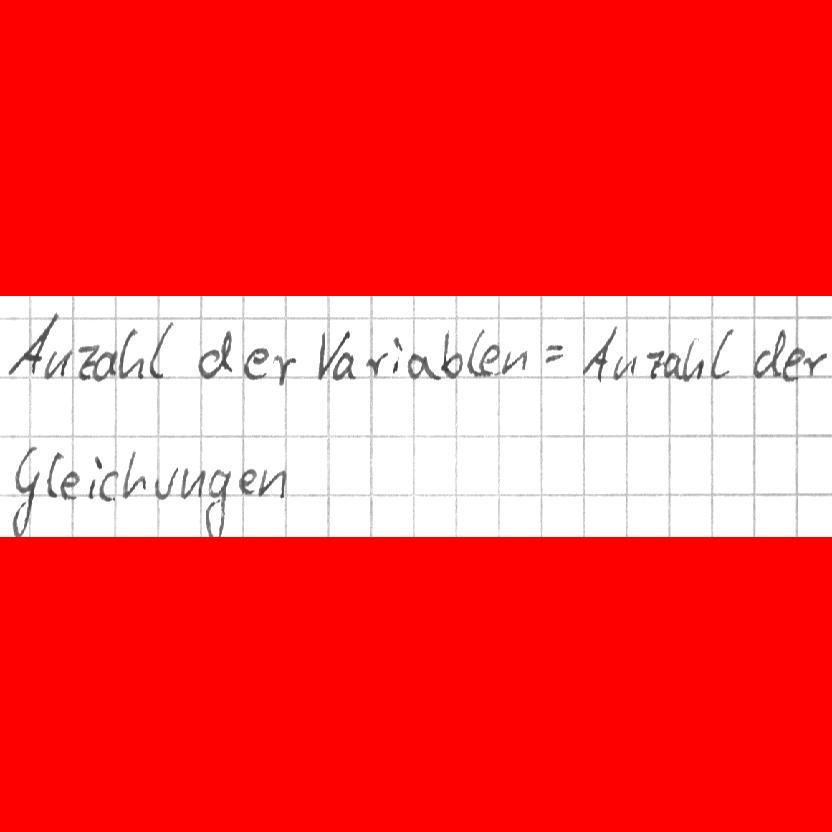 Anzahl der Variablen = Anzahl der
Gleichungen